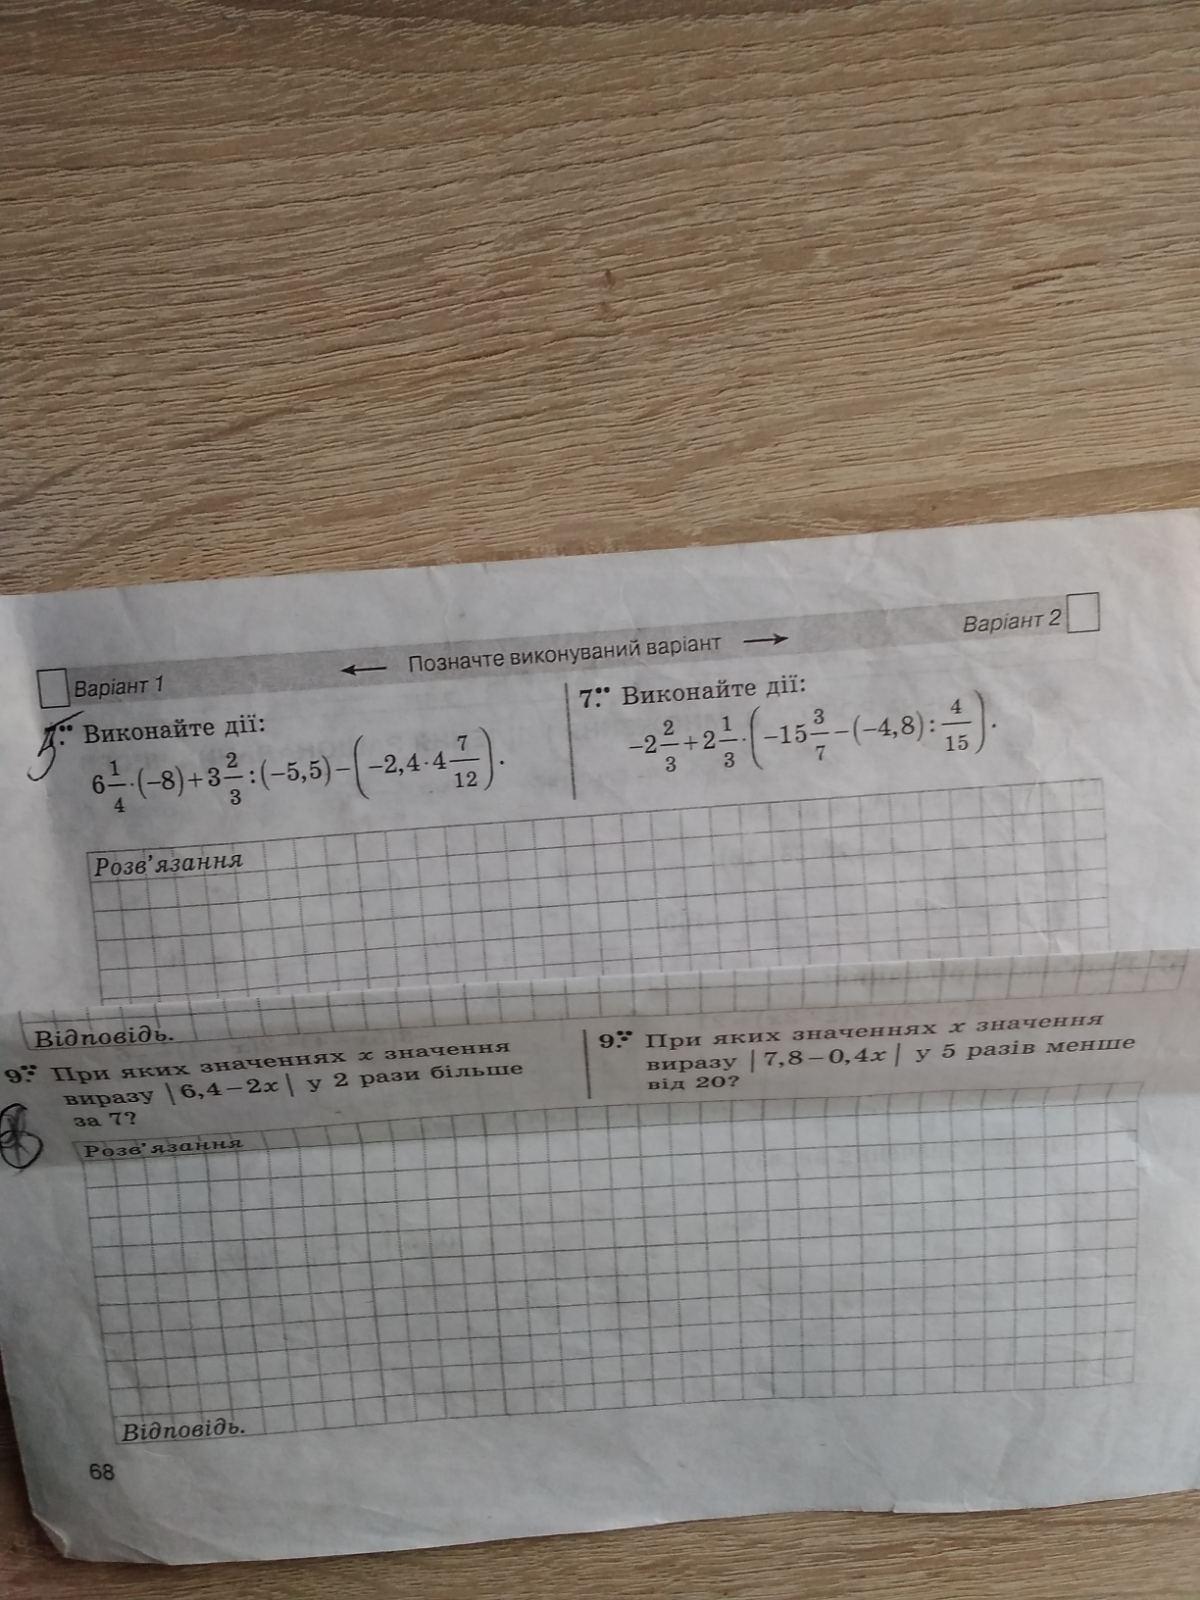 Варіант 1
← Позначте виконуваний варіант →
Варіант 2
Виконайте дії:
6 1/4 · (−8) + 3 2/3 : (−5,5) − (−2,4 · 4 7/12).
7.•• Виконайте дії:
−2 2/3 + 2 1/3 · (−15 3/7 − (−4,8) : 4/15).
Розв’язання
Відповідь.
9.•• При яких значеннях x значення
виразу |6,4 − 2x| у 2 рази більше
за 7?
9.•• При яких значеннях x значення
виразу |7,8 − 0,4x| у 5 разів менше
від 20?
Розв’язання
Відповідь.
68